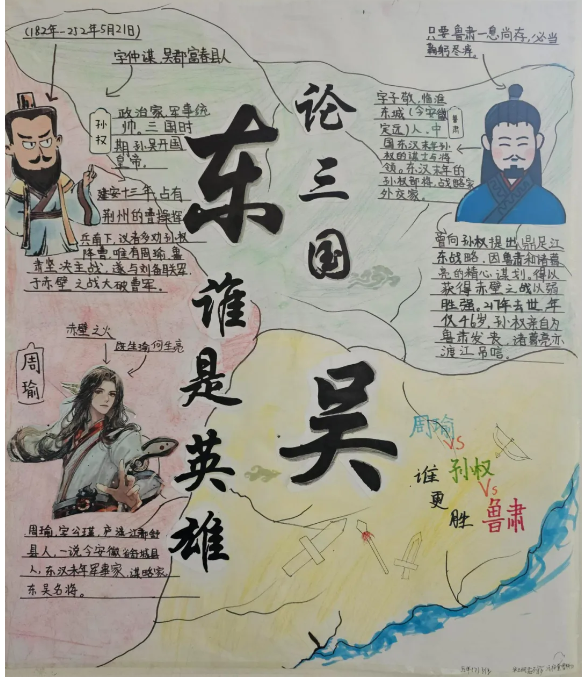 (182年-252年5月21日)
字仲谋,吴郡富春县人
孙权
政治家,军事统
帅,三国时
期孙吴开国
皇帝。
建安十三年,占有
荆州的曹操挥
兵南下,议者多劝孙权
降曹,唯有周瑜,鲁
肃坚决主战,遂与刘备联军,
于赤壁之战大破曹军。
论三国
东吴
谁是英雄
只要鲁肃一息尚存,必当
鞠躬尽瘁。
鲁肃
字子敬,临淮
东城(今安徽
定远)人,中
国东汉末年孙
权的谋士与将
领。东汉末年的
孙权部将,战略家
外交家。
曾向孙权提出鼎足江
东战略,因鲁肃和诸葛
亮的精心谋划,得以
获得赤壁之战以弱
胜强。217年去世,年
仅46岁,孙权亲自为
鲁肃发丧,诸葛亮亦
渡江吊唁。
赤壁之火
既生瑜何生亮
周瑜
周瑜,字公瑾,庐江郡舒
县人,一说今安徽省舒城县
人,东汉末年军事家,谋略家,
东吴名将。
周瑜
VS
孙权
VS
鲁肃
谁更胜